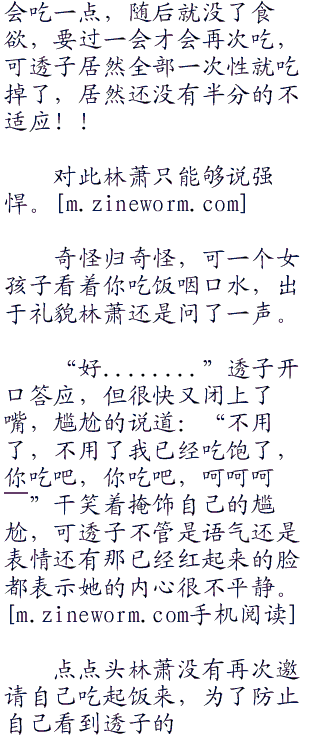 会吃一点，随后就没了食
欲，要过一会才会再次吃，
可透子居然全部一次性就吃
掉了，居然还没有半分的不
适应！！
对此林萧只能够说强
悍。[m.zineworm.com]
奇怪归奇怪，可一个女
孩子看着你吃饭咽口水，出
于礼貌林萧还是问了一声。
“好........”透子开
口答应，但很快又闭上了
嘴，尴尬的说道：“不用
了，不用了我已经吃饱了，
你吃吧，你吃吧，呵呵呵
”干笑着掩饰自己的尴
尬，可透子不管是语气还是
表情还有那已经红起来的脸
都表示她的内心很不平静。
[m.zineworm.com手机阅读]
点点头林萧没有再次邀
请自己吃起饭来，为了防止
自己看到透子的